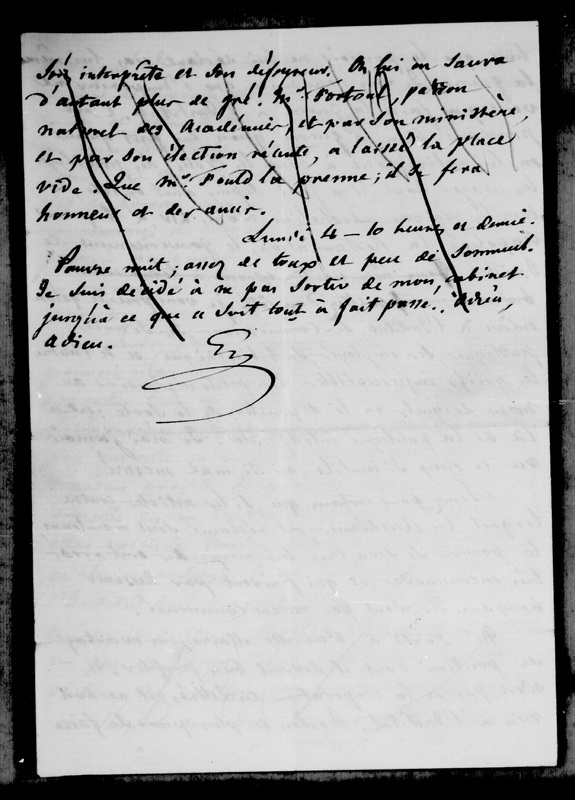 son interprète et son défenseur. On lui en saura
d'autant plus de gré. Mr Fortoul, patron
naturel des Académies, et par son ministère,
et par son élection récente, a laissé la place
vide. Que Mr Fould la prenne ; il se fera
honneur et devoir.
Lundi 4 - 10 heures et demie.
Pauvre nuit ; assez de toux et peu de sommeil.
Je suis décidé à ne pas sortir de mon cabinet
jusqu'à ce que ce soit tout à fait passé. Adieu,
adieu.